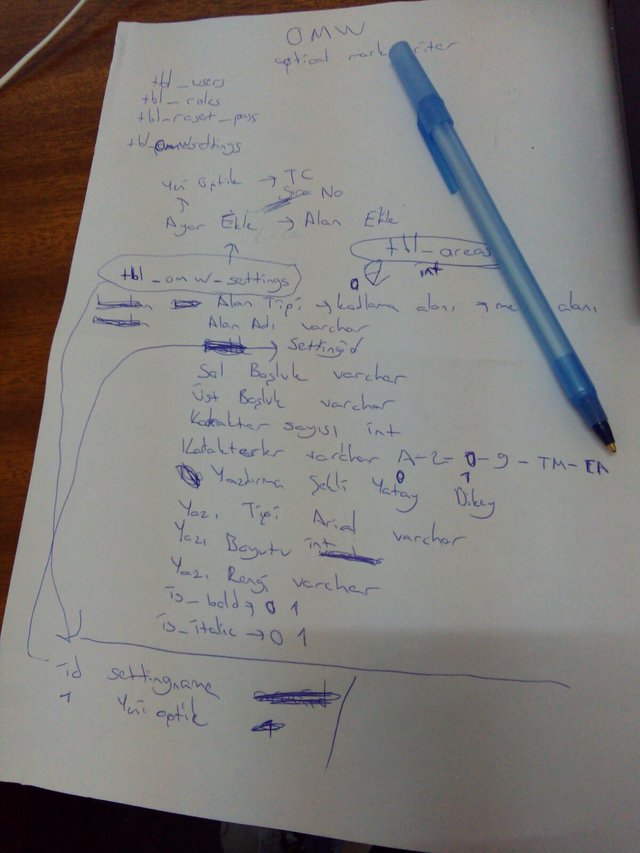 OMW
optical mark writer
tbl_users
tbl_roles
tbl_reset_pass
tbl_omwsettings
Yeni Optik → TC
Sıra No
Ayar Ekle → Alan Ekle
tbl_areas
tbl_omw_settings
int
0
Alan Tipi → kodlama alanı → alanı
Alan Adı varchar
Settingid
Sol Boşluk varchar
Üst Boşluk varchar
Karakter sayısı int
Karakterler varchar A-Z-0-9-TM-
Yazdırma Şekli Yatay 0 Dikey 1
Yazı Tipi Arial varchar
Yazı Boyutu int
Yazı Rengi varchar
is_bold → 0 1
is_italic → 0 1
id settingname
1 Yeni optik